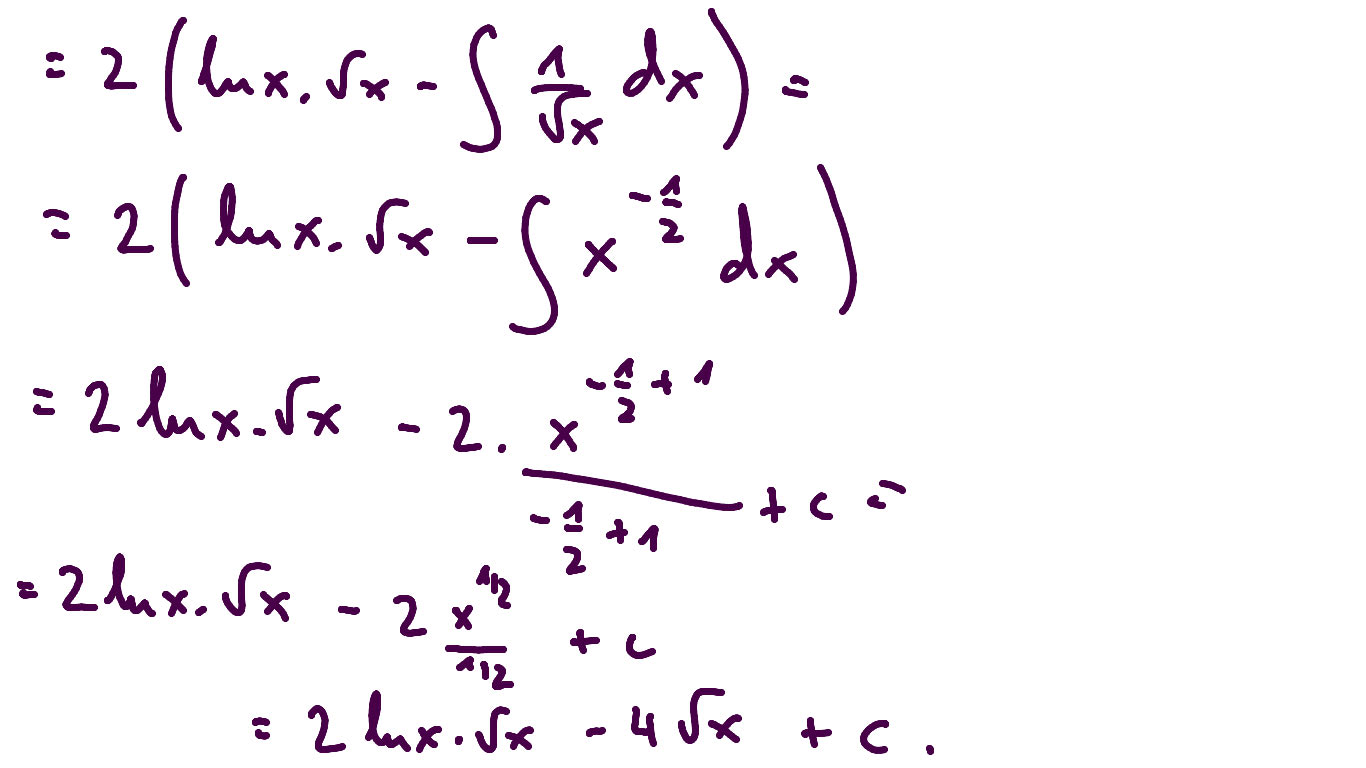 = 2 ( ln x . √x - ∫ 1/√x dx ) =
= 2 ( ln x . √x - ∫ x^(-1/2) dx )
= 2 ln x . √x - 2 . x^(-1/2 + 1) / (-1/2 + 1) + c =
= 2 ln x . √x - 2 x^(1/2) / (1/2) + c
= 2 ln x . √x - 4 √x + c .